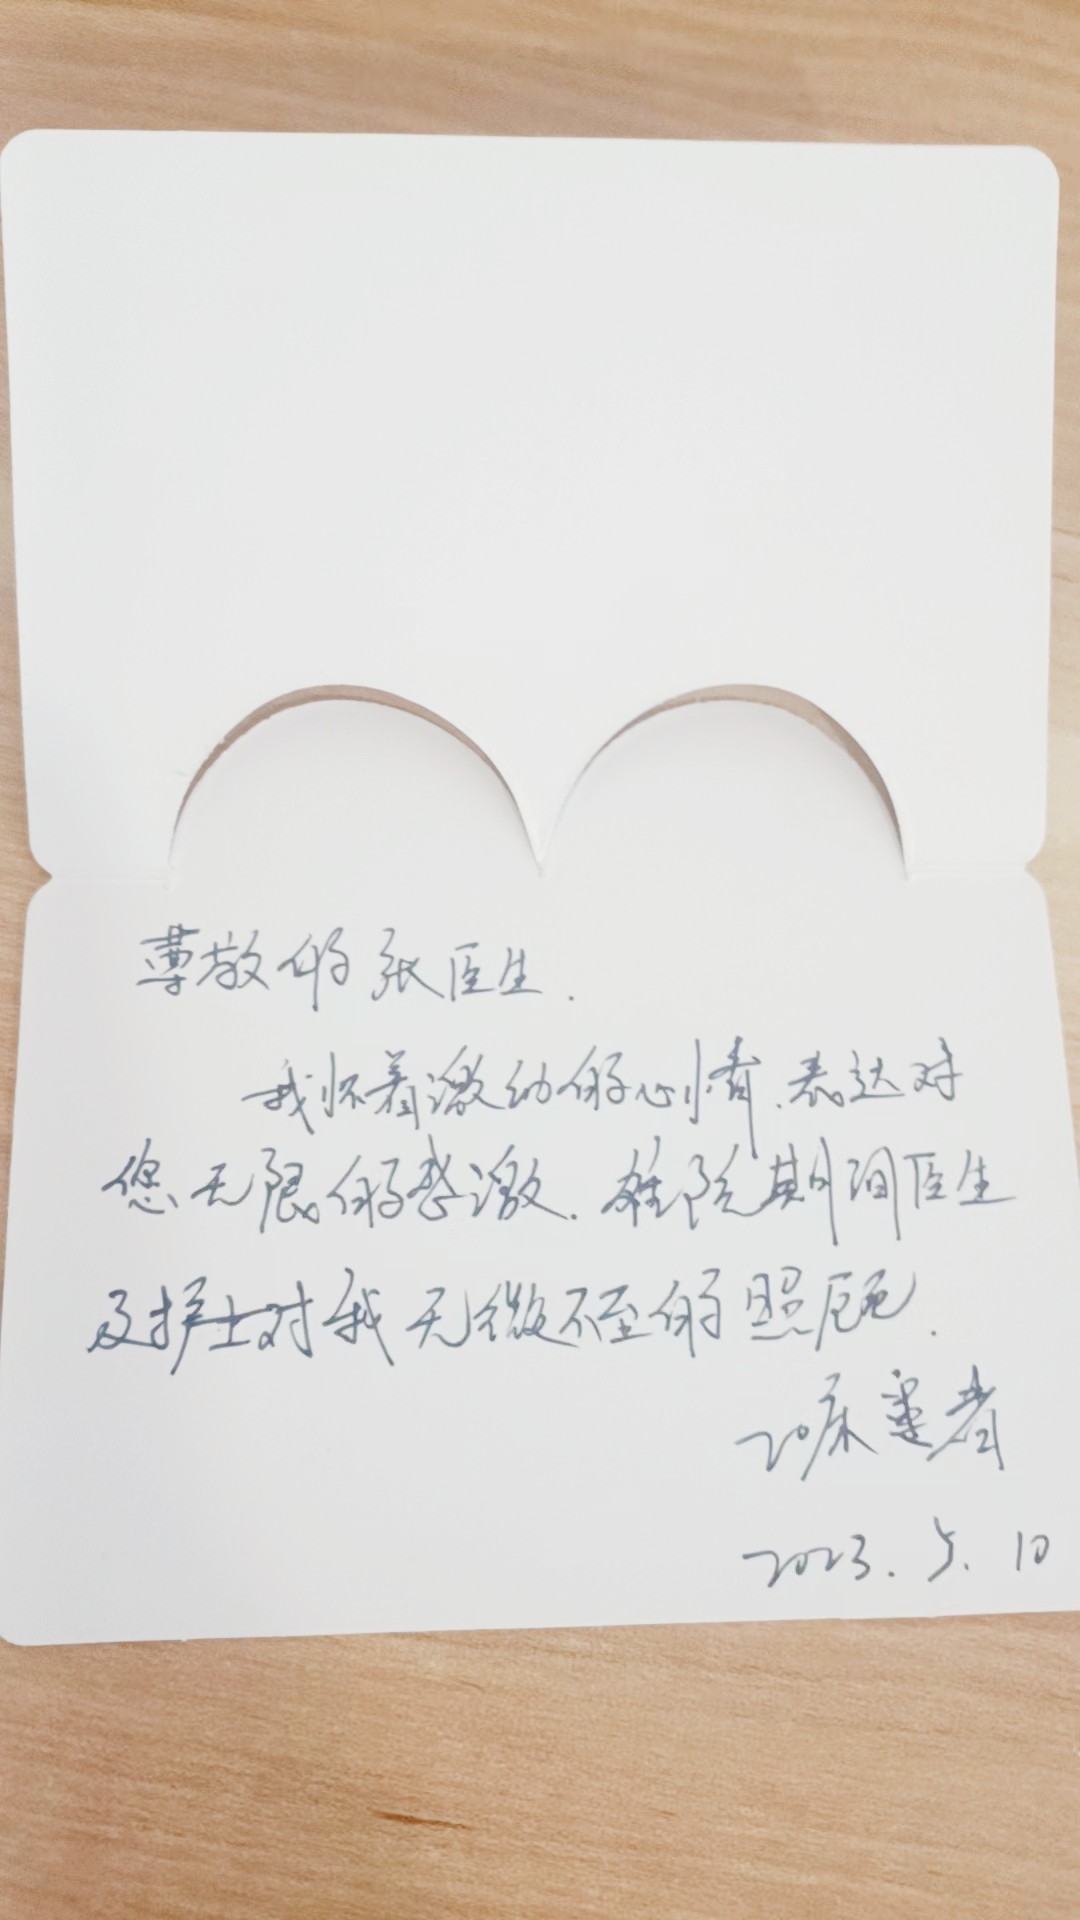 尊敬的张医生.
我怀着激动的心情.表达对
您无限的感激.在院期间医生
及护士对我无微不至的照顾.
20床患者
2023.5.10